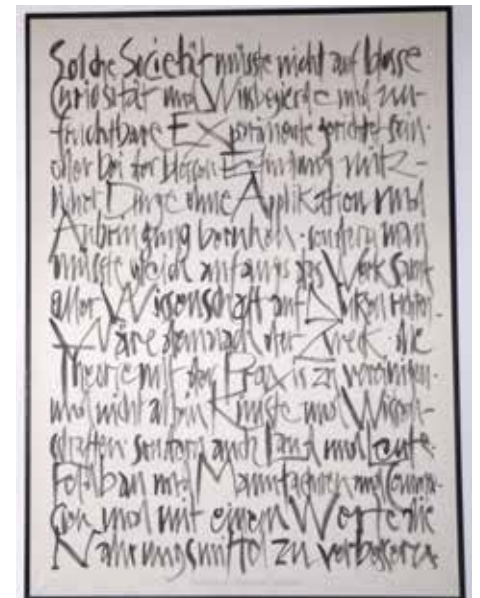 Solche Societät müsste nicht auf blosse
Curiosität und Wissbegierde und un-
fruchtbare Experimente gerichtet sein
oder bei der blossen Erfindung nütz-
licher Dinge ohne Applikation und
Anbringung beruhen · sondern man
müsste gleich anfangs das Werk samt
aller Wissenschaft auf
Wäre demnach der Zweck die
Theorie mit der Praxis zu vereinigen ·
und nicht allein Künste und Wissen-
schaften sondern auch Land und Leute ·
Feldbau und Manufacturen und Commer-
cien und mit einem Worte die
Nahrungsmittel zu verbessern